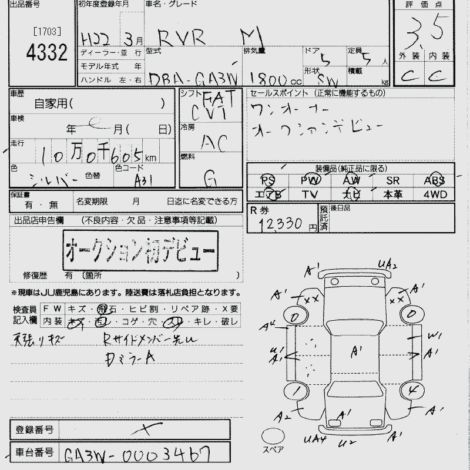 出品番号
[1703]
4332
初年度登録年月
H22年3月
ディーラー・並行
モデル年式 年
ハンドル 左・右
車名・グレード
RVR M
型式
DBA-GA3W
排気量
1800cc
ドア
5
形状
SW
定員
5人
積載
kg
評価点
3.5
外装 内装
C C
車歴
自家用( )
車検
年 月( 日)
走行
10万0千605km
色
シルバー
色替
色コード
A31
シフト
FAT
CVT
冷房
AC
燃料
G
セールスポイント(正常に機能するもの)
ワンオーナー
オークションデビュー
装備品(純正品に限る)
PS PW AW SR ABS
エアB TV ナビ 本革 4WD
保証書
有・無
名変期限 月 日迄に名変できる方
R券
12330円
預託済
後日品
出品店申告欄 (不良内容・欠品・注意事項等記載)
オークション初デビュー
修復歴 有(箇所 )
*現車はJU鹿児島にあります。陸送費は落札店負担となります。
検査員記入欄
FW キズ・飛石・ヒビ割・リペア跡・X要
内装 コゲ・穴・キレ・破レ
天張りキズ
Rサイドメンバー
DミラーA
登録番号
車台番号
GA3W-0003467
UA2
A1
A1
XX
XX
A1
W1
A1
A1
A1
A2
A1
A1
UA4
U2
A1
スペア